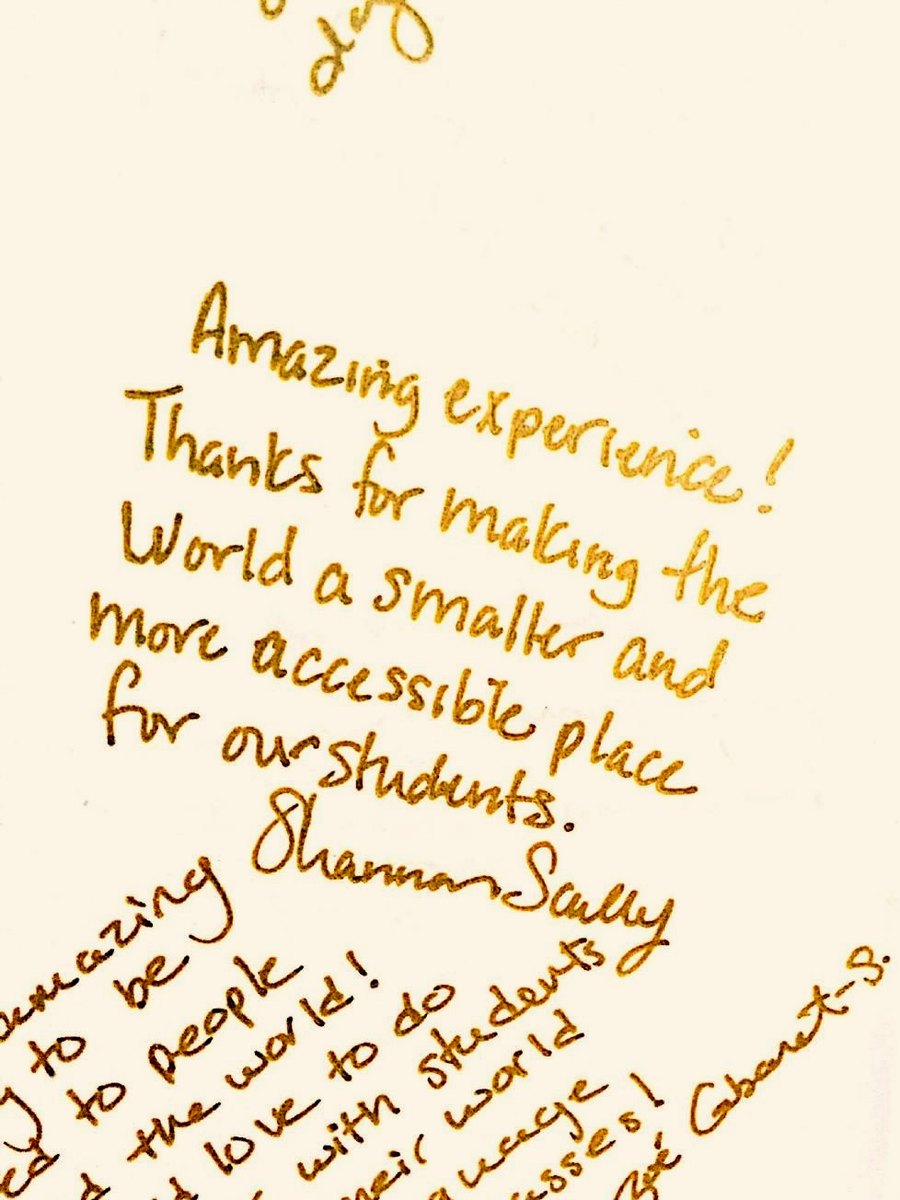 Amazing experience!
Thanks for making the
World a smaller and
more accessible place
for our students.
Shannon Scully
amazing
to be
to people
the world!
love to do
with students
their world
Cabaret-S.